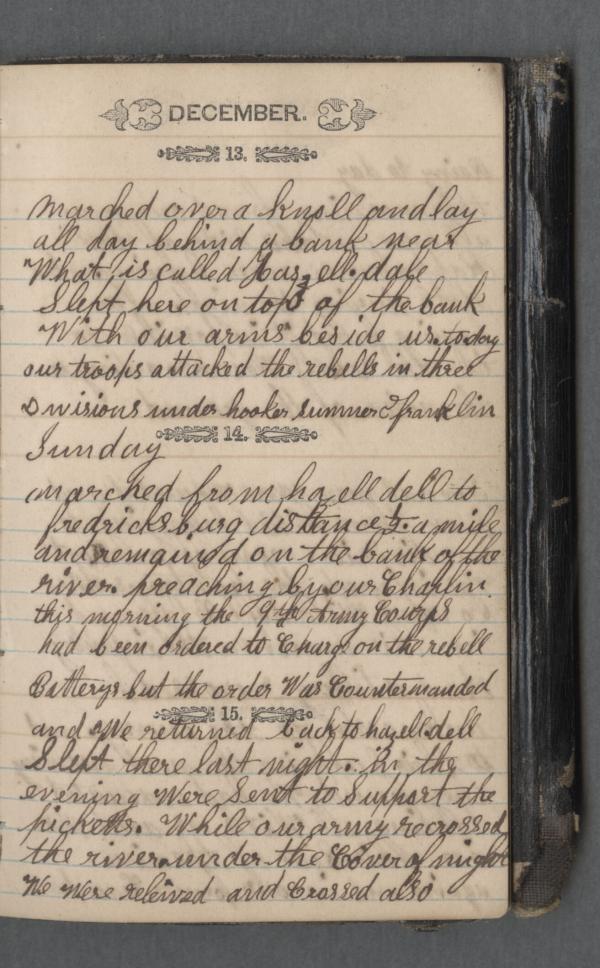 DECEMBER.
13.
Marched over a knoll and lay
all day behind a bank near
What is called Haszell. dale
Slept here on top of the bank
With our arms beside us. to day
our troops attacked the rebells in three
Divisions under hooker sumner & franklin
14.
Sunday
marched from hazell dell to
fredricksburg distance ½ a mile
and remaind on the bank of the
river. preaching by our Chaplin
this morning the 9th Army Courps
had been ordered to Charge on the rebell
Batterys but the order Was Countermanded
15.
and We returned back to hazell dell
Slept there last night. In the
evening Were Sent to Support the
picketts. While our army recrossed
the river. under the Cover of night
We Were releived and Crossed also